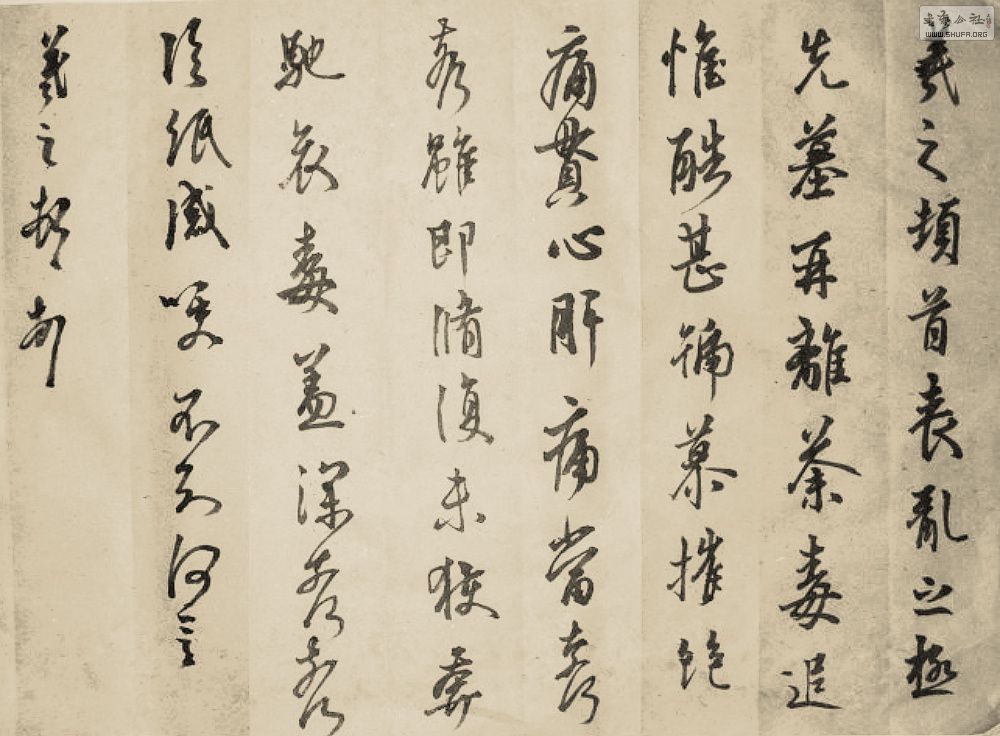 羲之頓首喪亂之極
先墓再離荼毒追
惟酷甚號慕摧絕
痛貫心肝痛當奈何
奈何雖即脩復未獲奔
馳哀毒益深奈何奈何
臨紙感哽不知何言
羲之頓首頓首
WWW.SHUFA.ORG